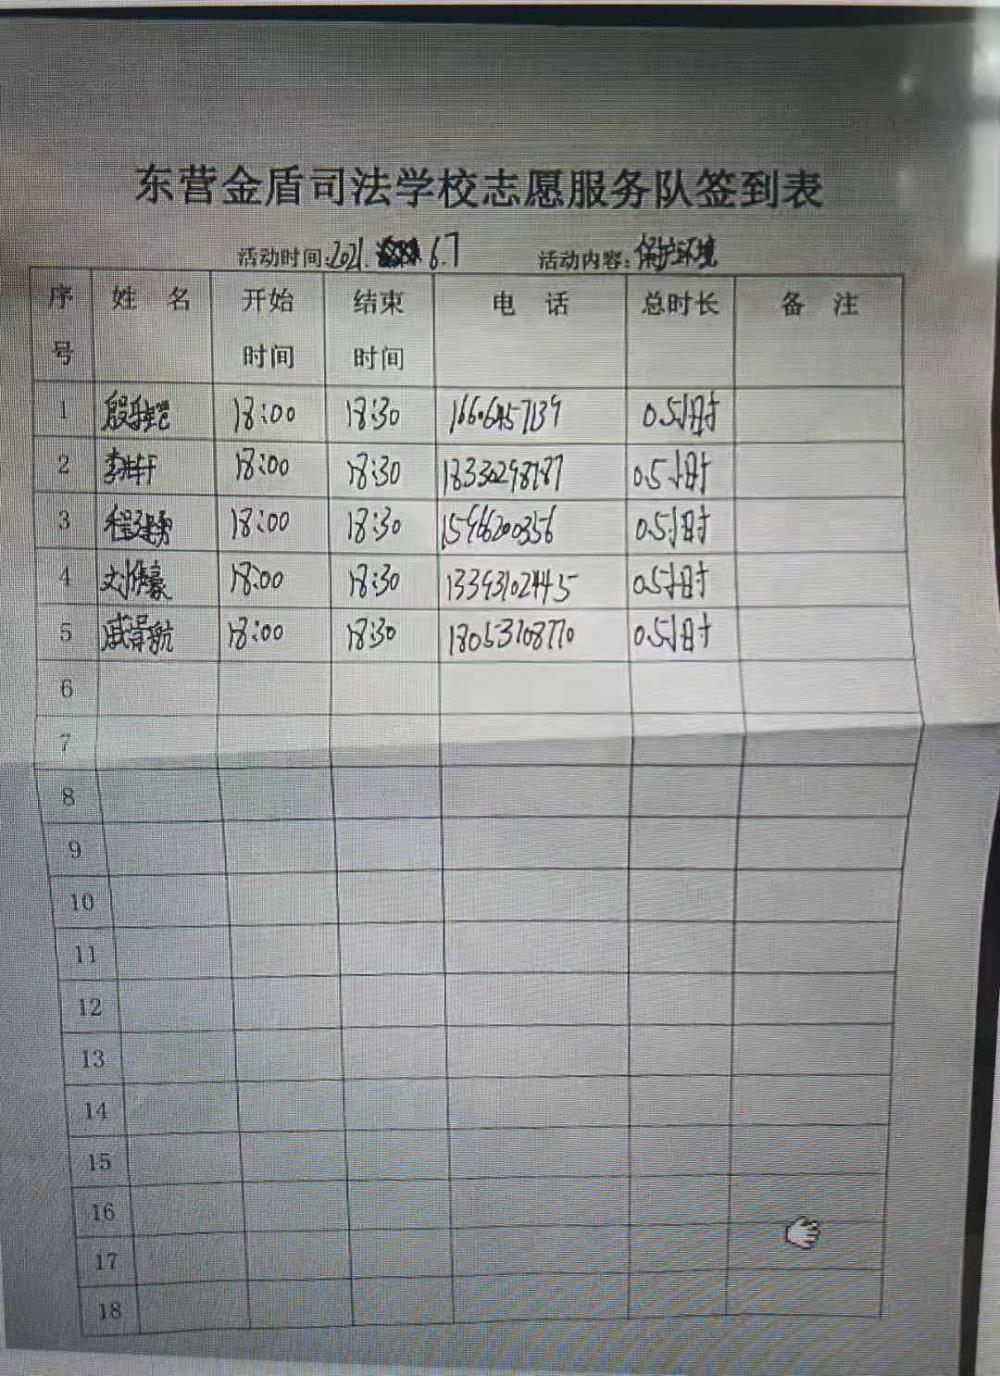 东营金盾司法学校志愿服务队签到表
活动时间:2021. 6.7 活动内容:保护环境
序号 姓 名 开始时间 结束时间 电 话 总时长 备 注
1 18:00 18:30 16606457139 0.5小时
2 18:00 18:30 0.5小时
3 程建勇 18:00 18:30 15966200356 0.5小时
4 刘伟豪 18:00 18:30 13393102445 0.5小时
5 18:00 18:30 18053708770 0.5小时
6
7
8
9
10
11
12
13
14
15
16
17
18